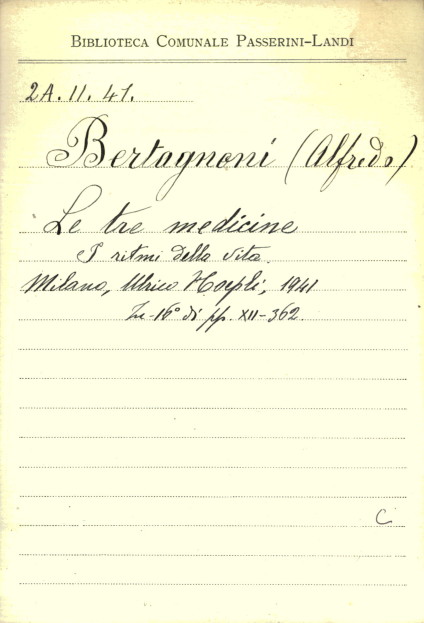 BIBLIOTECA COMUNALE PASSERINI-LANDI
2A. 11. 41.
Bertagnoni (Alfredo)
Le tre medicine
I ritmi della vita.
Milano, Ulrico Hoepli, 1941
In-16° di pp. XII-362.
C